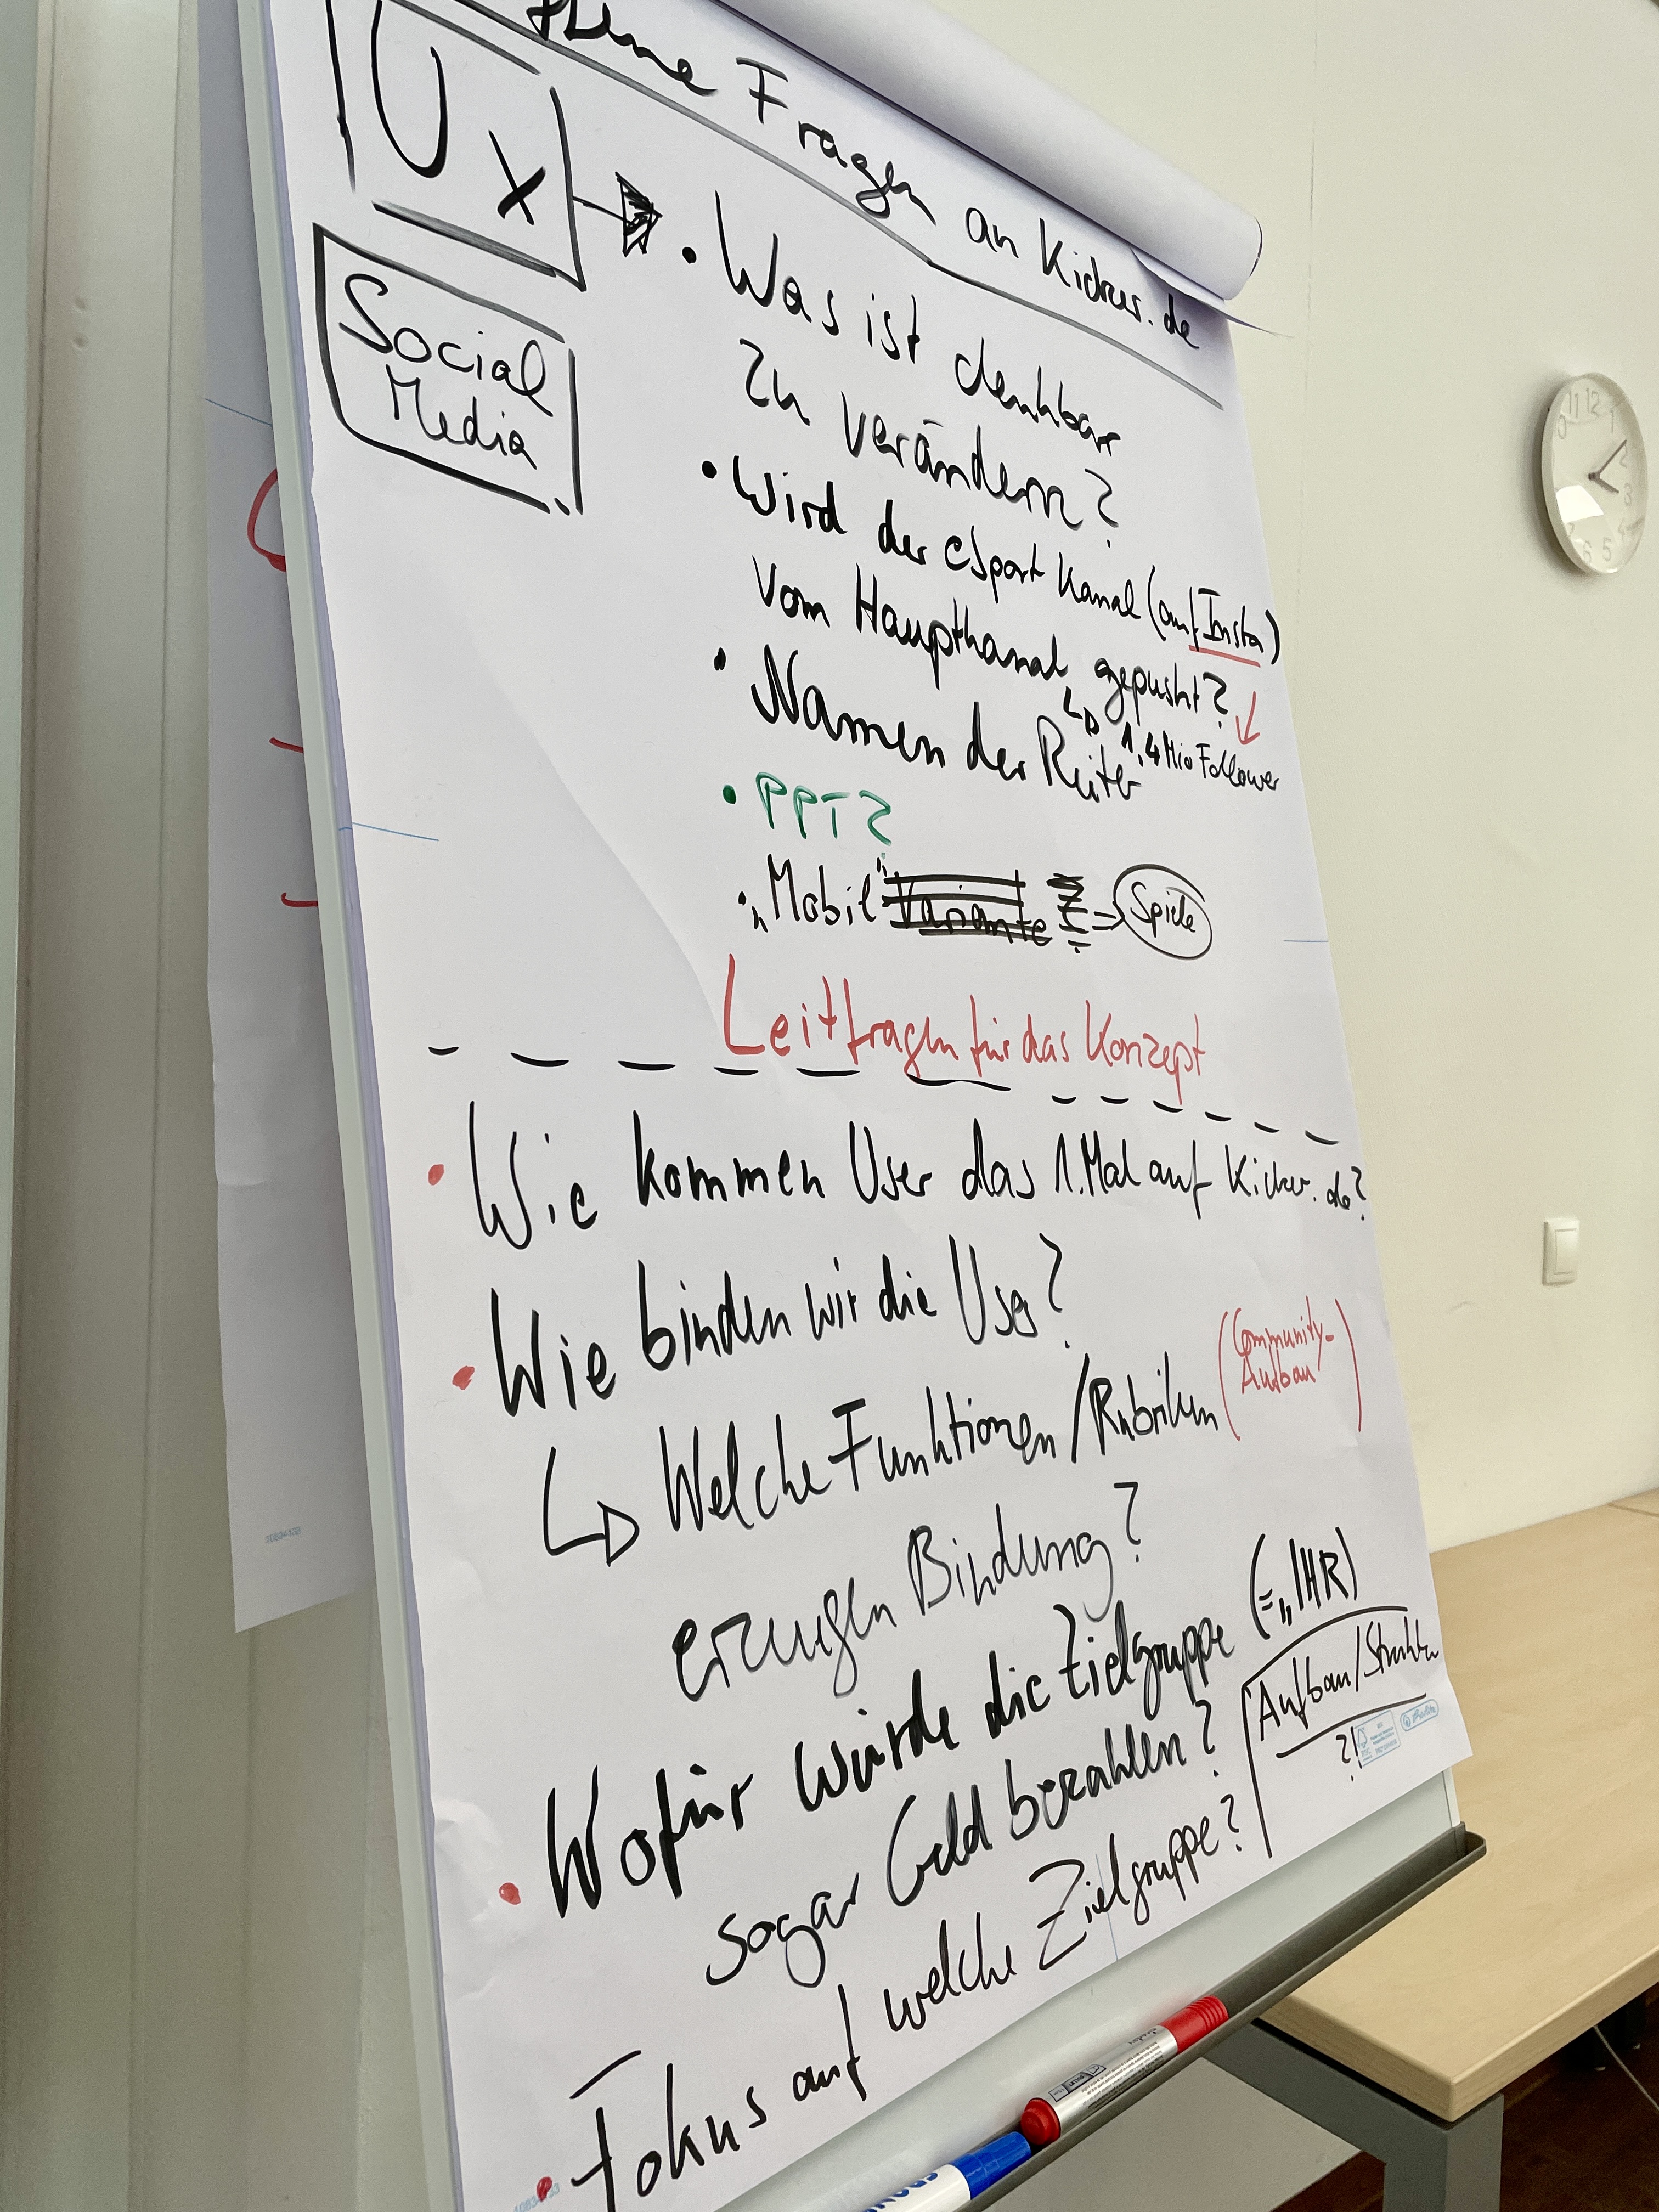 Fragen an Kicker.de
UX
Social
Media
• Was ist denkbar
zu verändern?
• Wird der eSport Kanal (auf Insta)
vom Hauptkanal gepusht?
↳ 1,4 Mio Follower
• Namen der Reiter
• PPT?
• „Mobil" Variante ⇒ Spiele
Leitfragen für das Konzept
• Wie kommen User das 1. Mal auf Kicker.de?
• Wie binden wir die User?
(Community-
Aufbau)
↳ Welche Funktionen/Rubriken
erzeugen Bindung?
• Wofür würde die Zielgruppe (=„IHR)
sogar Geld bezahlen?
Aufbau/Struktur
?!
• Fokus auf welche Zielgruppe?
11 12 1 2 3 4 5 6